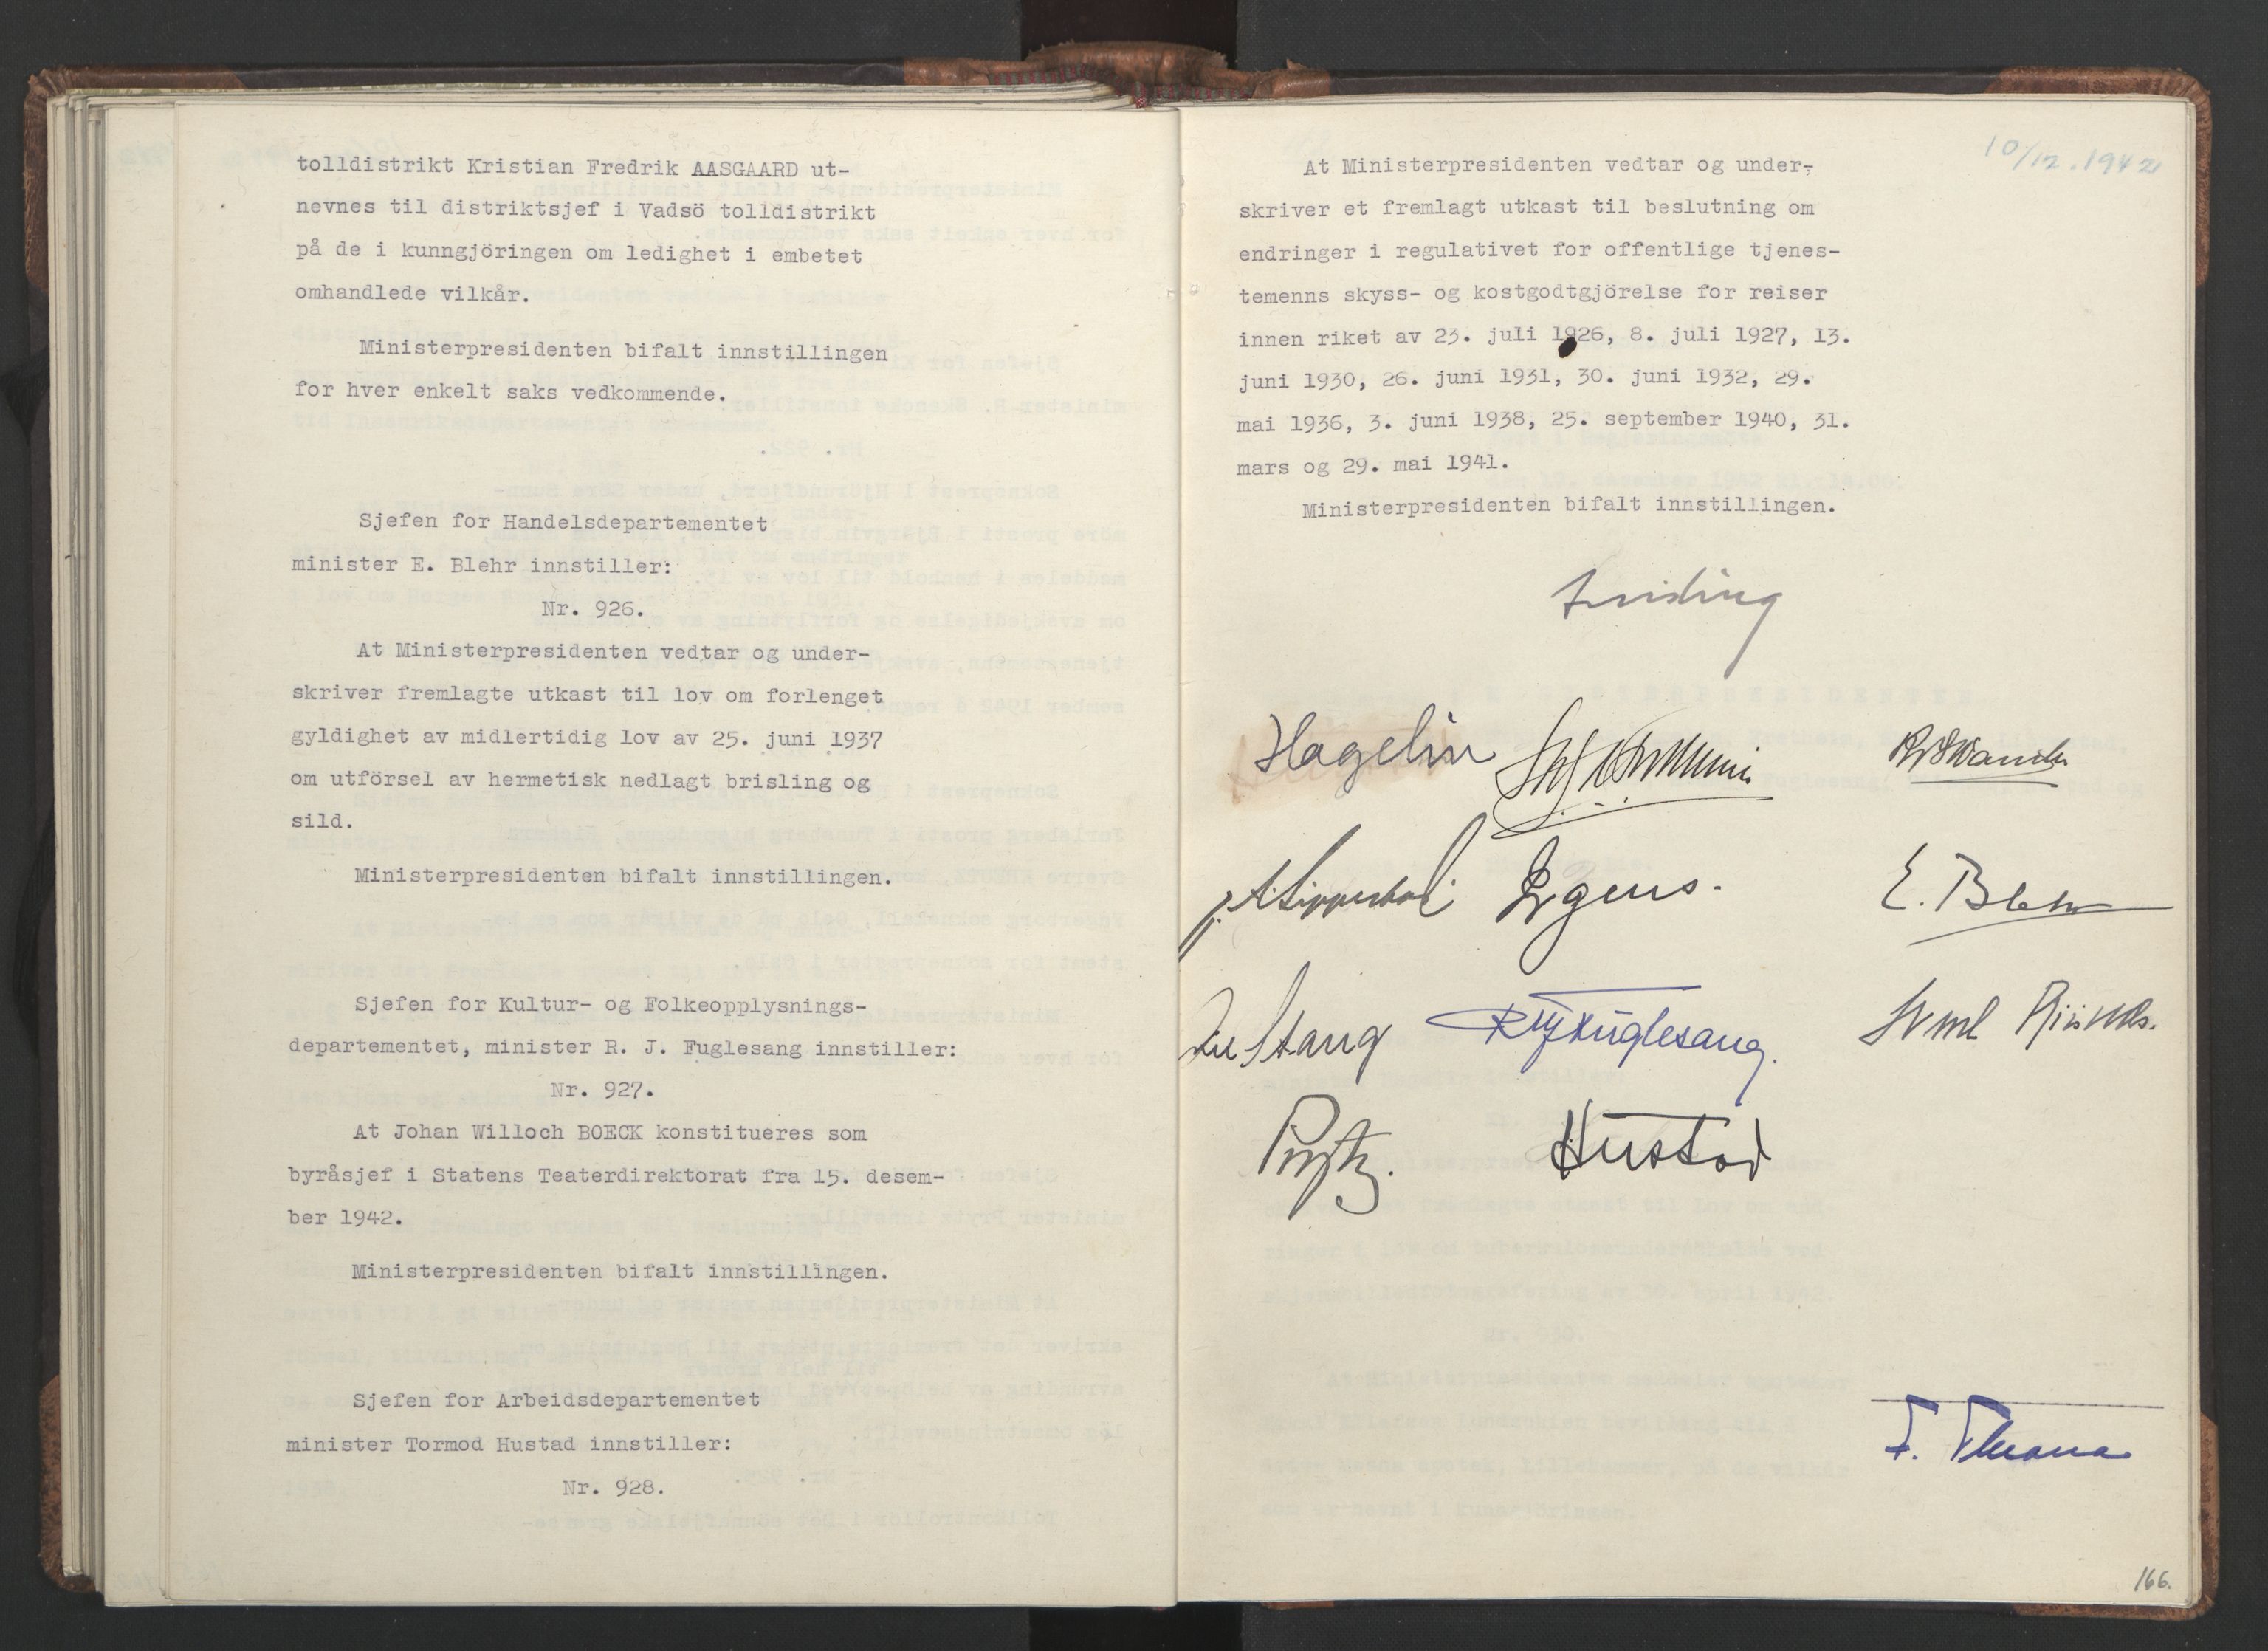 tolldistrikt Kristian Fredrik AASGAARD ut-
nevnes til distriktsjef i Vadsö tolldistrikt
på de i kunngjöringen om ledighet i embetet
omhandlede vilkår.
Ministerpresidenten bifalt innstillingen
for hver enkelt saks vedkommende.
Sjefen for Handelsdepartementet
minister E. Blehr innstiller:
Nr. 926.
At Ministerpresidenten vedtar og under-
skriver fremlagte utkast til lov om forlenget
gyldighet av midlertidig lov av 25. juni 1937
om utförsel av hermetisk nedlagt brisling og
sild.
Ministerpresidenten bifalt innstillingen.
Sjefen for Kultur- og Folkeopplysnings-
departementet, minister R. J. Fuglesang innstiller:
Nr. 927.
At Johan Willoch BOECK konstitueres som
byråsjef i Statens Teaterdirektorat fra 15. desem-
ber 1942.
Ministerpresidenten bifalt innstillingen.
Sjefen for Arbeidsdepartementet
minister Tormod Hustad innstiller:
Nr. 928.
10/12.1942
At Ministerpresidenten vedtar og under-
skriver et fremlagt utkast til beslutning om
endringer i regulativet for offentlige tjenes-
temenns skyss- og kostgodtgjörelse for reiser
innen riket av 23. juli 1926, 8. juli 1927, 13.
juni 1930, 26. juni 1931, 30. juni 1932, 29.
mai 1936, 3. juni 1938, 25. september 1940, 31.
mars og 29. mai 1941.
Ministerpresidenten bifalt innstillingen.
Quisling
Hagelin
Lippestad Irgens. E. Blehr
Stang R J Fuglesang. Sverre Riisnæs.
Prytz. Hustad
166.